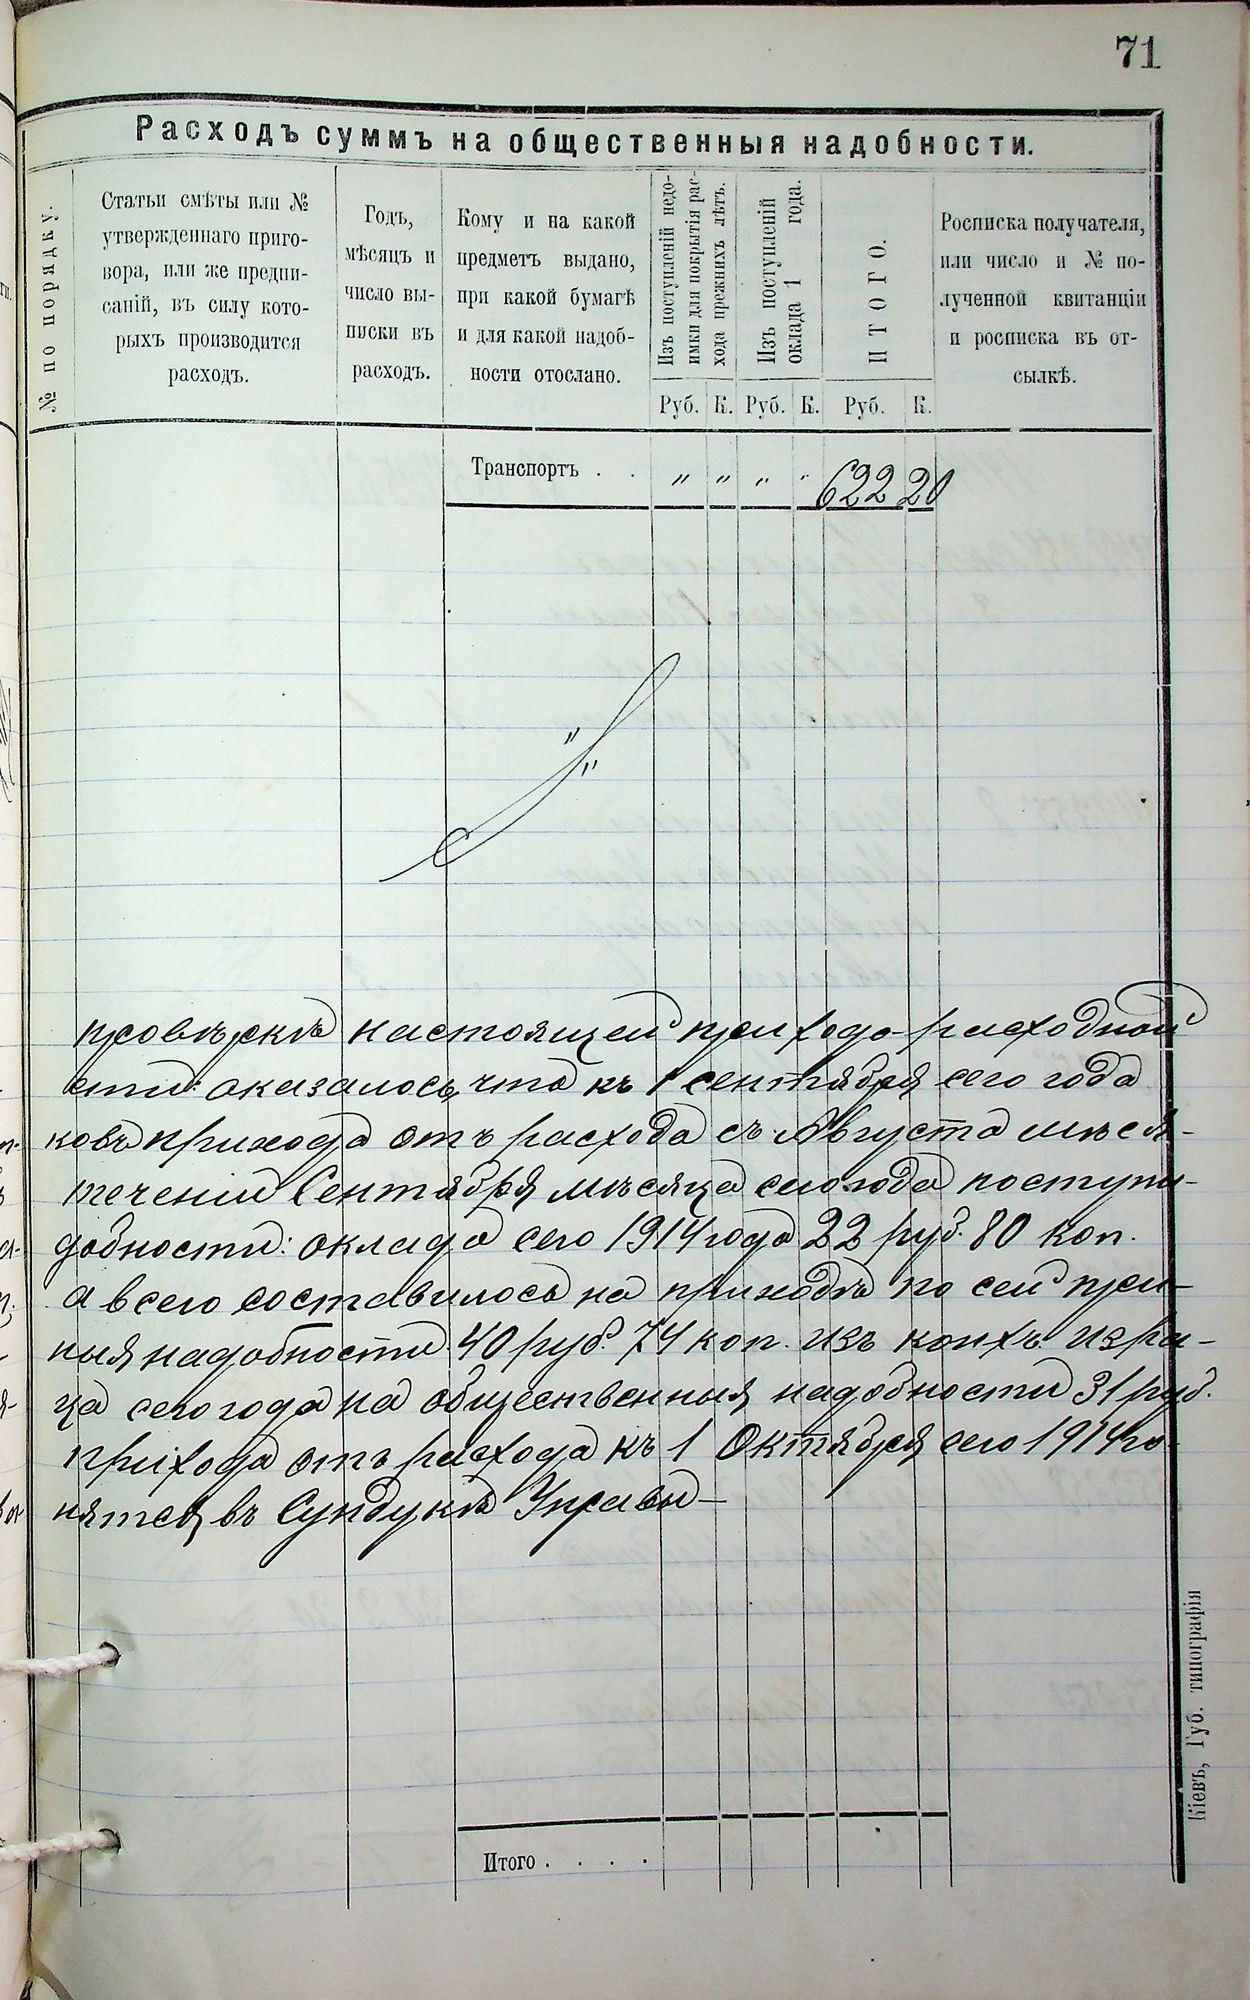 71
Расходъ суммъ на общественныя надобности.
№ по порядку.
Статьи смѣты или №
утвержденнаго приго-
вора, или же предпи-
саній, въ силу кото-
рыхъ производится
расходъ.
Годъ,
мѣсяцъ и
число вы-
писки въ
расходъ.
Кому и на какой
предметъ выдано,
при какой бумагѣ
и для какой надоб-
ности отослано.
Изъ поступленій недо-
имки для покрытія рас-
хода прежнихъ лѣтъ.
Изъ поступленій
оклада 1 года.
ИТОГО.
Росписка получателя,
или число и № по-
лученной квитанціи
и росписка въ от-
сылкѣ.
Руб. К. Руб. К. Руб. К.
Транспортъ . . " " " " 622 20
" "
провѣркѣ настоящей приходо-расходной
оказалось, что къ 1 сентября сего года
ковъ прихода отъ расхода съ Августа мѣся-
теченіи Сентября мѣсяца сего года поступи-
добности: оклада сего 1914 года 22 руб. 80 коп.
а всего составилось на приходѣ по сей при-
ныя надобности 40 руб. 74 коп. изъ коихъ израс-
ца сего года на общественныя надобности 31 руб.
прихода отъ расхода къ 1 Октября сего 1914 го-
нятся въ Сундукѣ Управы—
Итого . . . .
Кіевъ, Губ. типографія